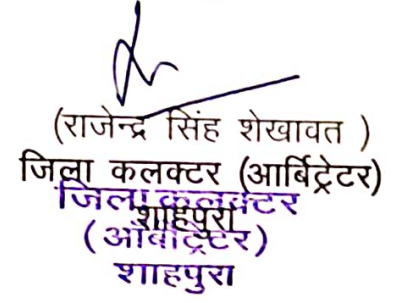 (राजेन्द्र सिंह शेखावत )
जिला कलक्टर (आर्बिट्रेटर)
शाहपुरा
जिला कलक्टर
(ऑर्बिट्रेटर)
शाहपुरा